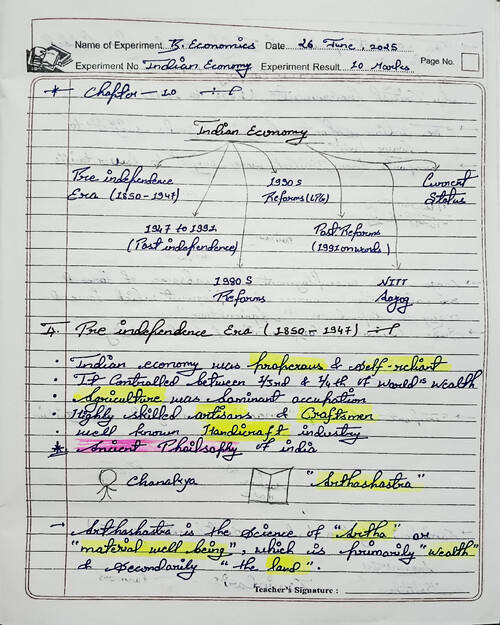 Name of Experiment B. Economics Date 26 June, 2025
Experiment No. Indian Economy Experiment Result 10 Marks Page No.
* Chapter - 10 :-
Indian Economy
Pre independence Era (1850-1947)
1990s Reforms (LPG)
Current Status
1947 to 1991 (Post independence)
Post Reforms (1991 onwords)
1980s Reforms
NITI Aayog
1. Pre independence Era (1850-1947) :-
• Indian economy was properous & self-reliant
• It Controlled between 1/3rd & 1/4th of world's wealth
• Agriculture was dominant occupation
• Highly skilled artisans & Craftsmen
• well known Handicraft industry
* Ancient Philsophy of india
Chanakya "Arthashastra"
→ Arthashastra is the science of "Artha" or
"material well being", which is primarily "wealth"
& secondarily "the land".
Teacher's Signature :